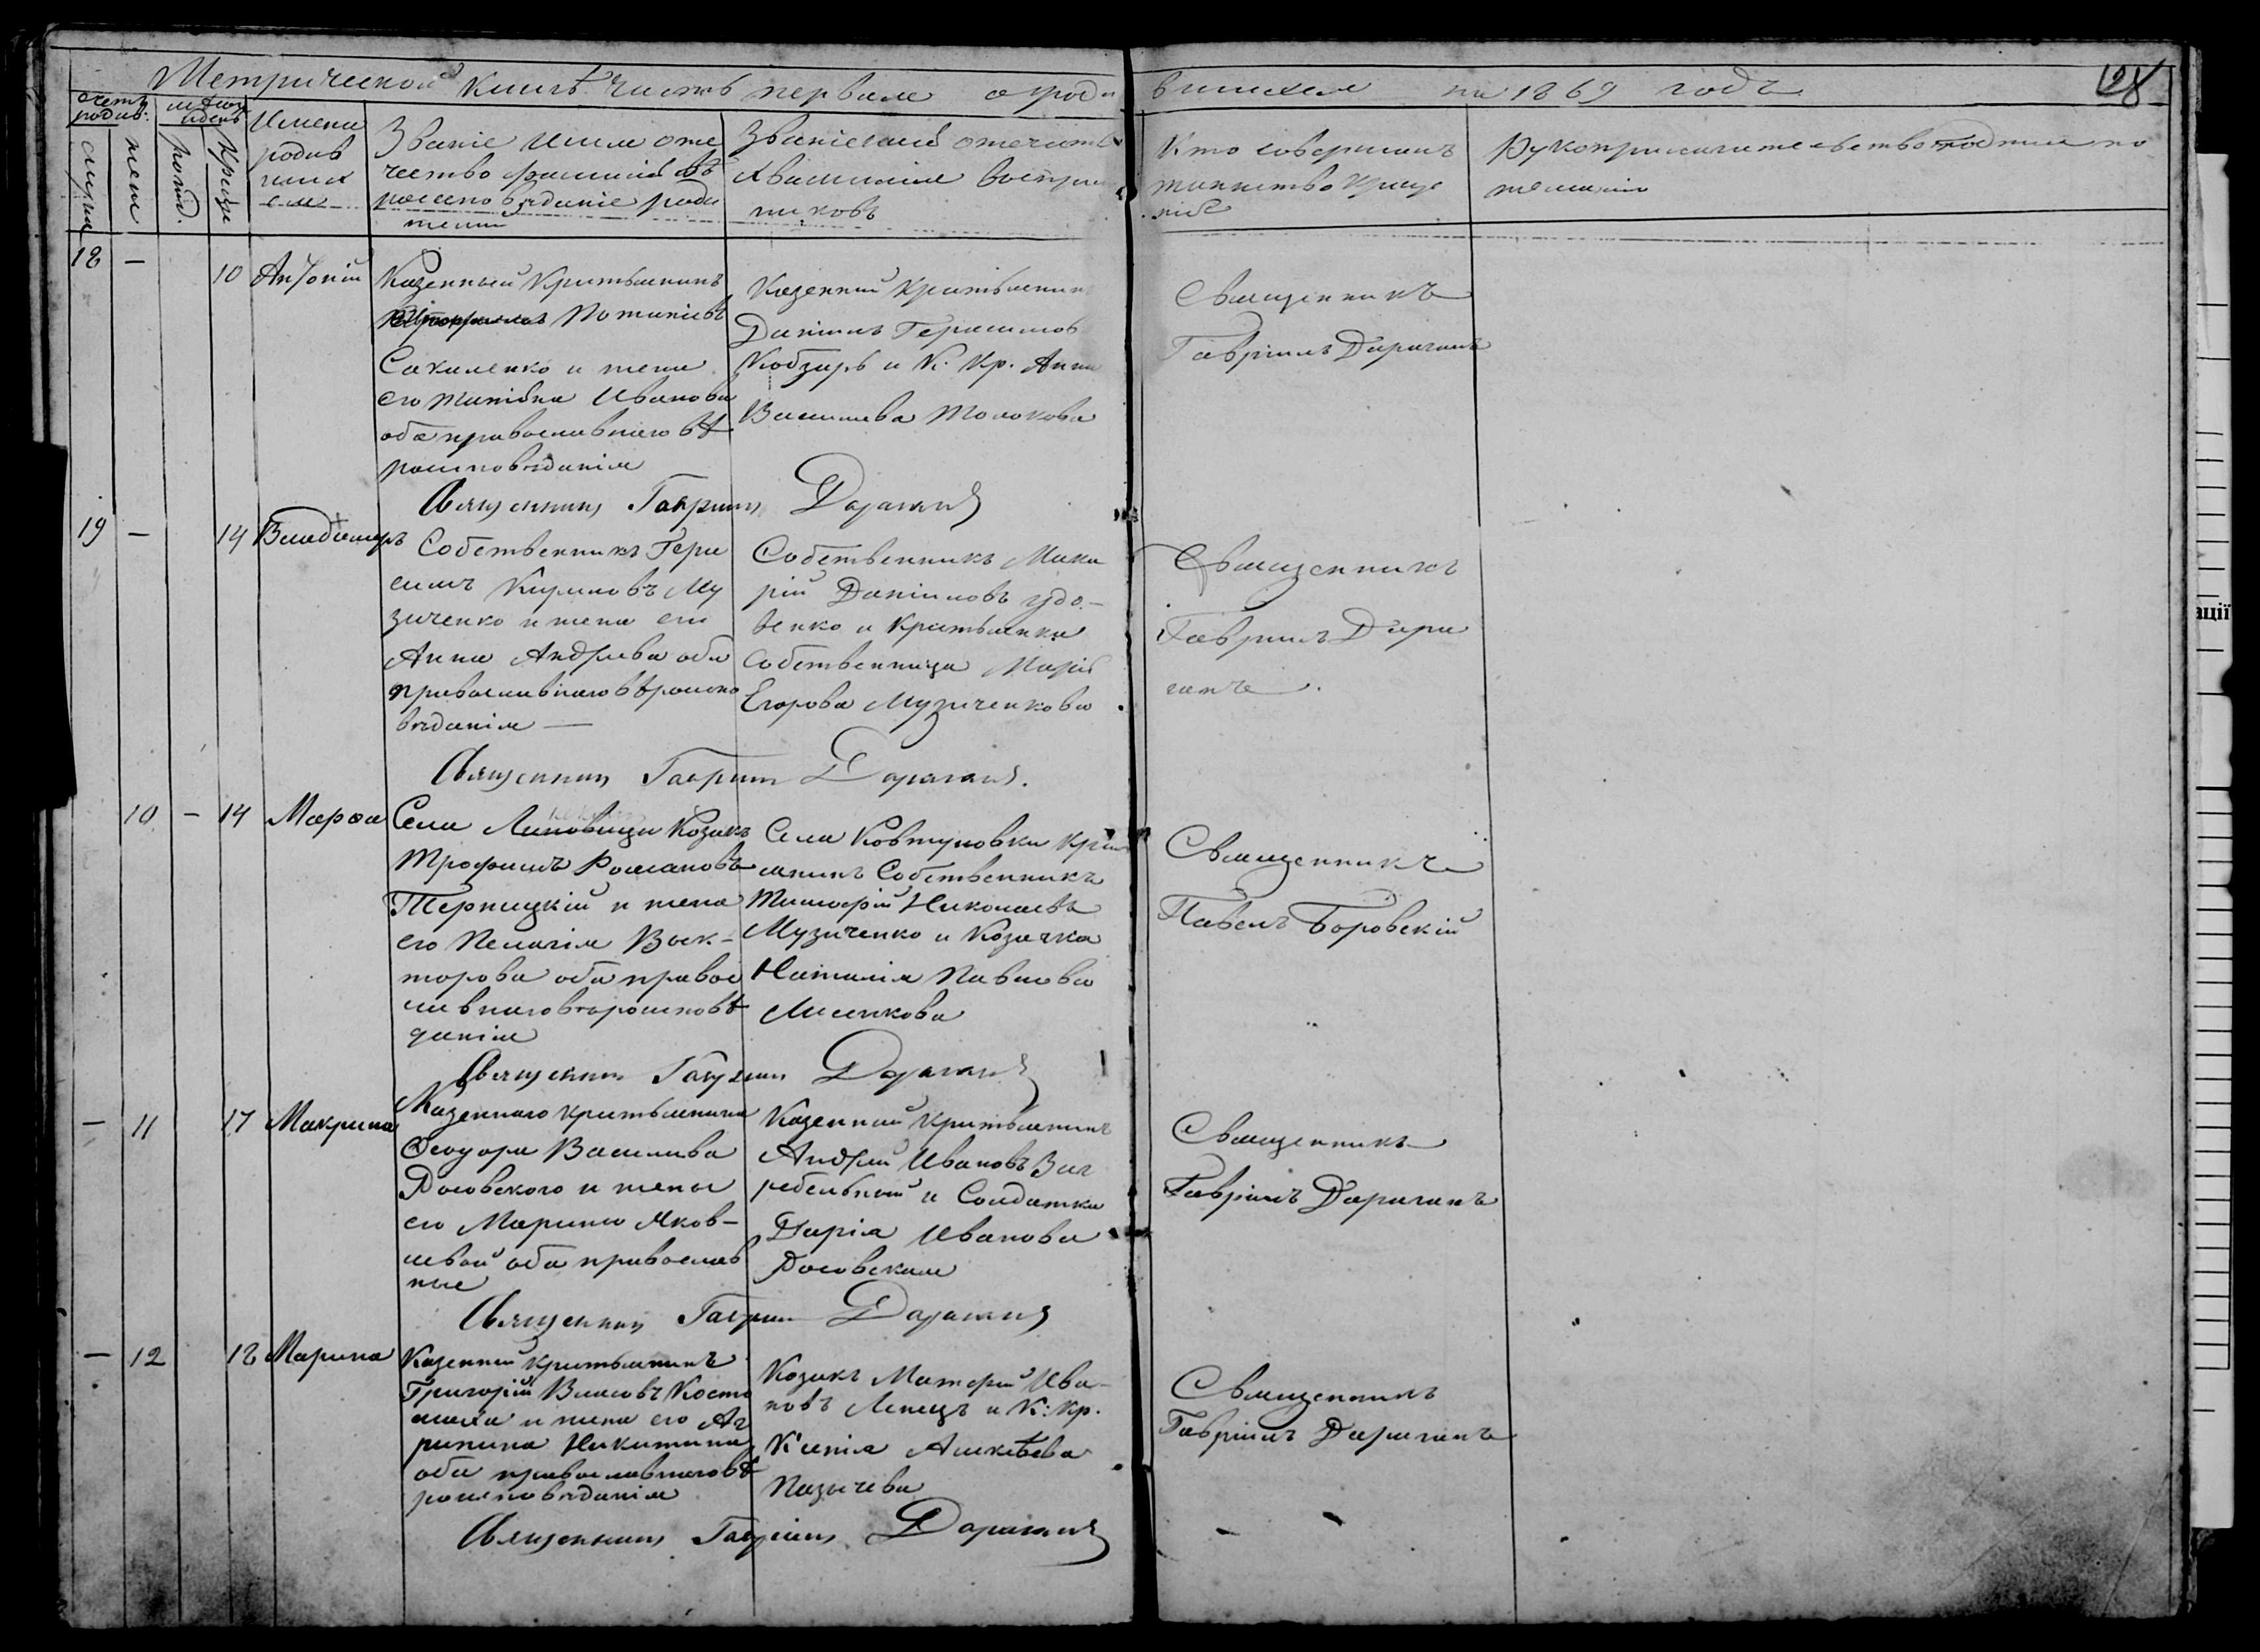 Метрической книги часть первая о роди
вшихся на 1869 годъ
28
Счетъ родив:
мужеска
жен
Мѣсяцъ и день
рожд.
Крещен
Имена
родив
шихся
Званіе имя оте
чество фамилія вѣ
роисповѣданіе роди
телей
Званіе имя отечество
фамилія воспріем
никовъ
Кто совершалъ
таинство креще
нія
Рукоприкладательство по
желанію
18 —
10 Антоній
Казенный Крестьянинъ
Потапіевъ
Сахаленко и жена
его Татіана Иванова
оба православнаго вѣ
роисповѣданія
Казенный Крестьянинъ
Даніилъ Герасимов
Кобзарь и К. Кр. Анна
Василиева Толокова
Священникъ
Гавріилъ Дараганъ
Священникъ Гавріилъ Дараганъ
19 —
14 Владимеръ
Собственникъ Гера
симъ Кириловъ Му
зиченко и жена его
Анна Андреева оба
православнаго вѣроиспо
вѣданія —
Собственникъ Мака
рій Даніиловъ Удо-
венко и Крестьянка
Собственница Марія
Егорова Музиченкова
Священникъ
Гавріилъ Дара
ганъ.
Священникъ Гавріилъ Дараганъ.
10 — 14 Марѳа
Села Козакъ
Трофимъ Романовъ
Терницкій и жена
его Пелагія Вик-
торова оба правос
лавнаго вѣроисповѣ
данія
Села Ковтуновки Крест
янинъ Собственникъ
Тимофій Николаевъ
Музиченко и Козачка
Наталія Павлова
Лисенкова
Священникъ
Павелъ Боровскій
Священникъ Гавріилъ Дараганъ
— 11
17 Макрина
Казеннаго крестьянина
Ѳеодора Василиева
Росовского и жены
его Марини Яков-
левой оба православ
ные
Казенный Крестьянинъ
Андрей Ивановъ Заг
ребельный и Солдатка
Дарія Иванова
Росовская
Священникъ
Гавріилъ Дараганъ
Священникъ Гавріилъ Дараганъ
— 12
18 Марина
Казенный крестьянинъ
Григорій Власовъ Косто
маха и жена его Аг
рипина Никитина
оба православнаго вѣ
роисповѣданія
Козакъ Матфей Ива-
новъ Лепецъ и К: Кр.
Ксенія Алексѣева
Пазычева
Священникъ
Гавріилъ Дараганъ
Священникъ Гавріилъ Дараганъ
ації